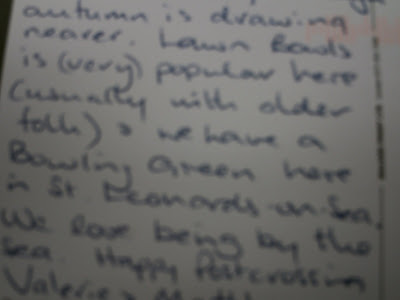 autumn is drawing
nearer. Lawn Bowls
is (very) popular here
(usually with older
folk) & we have a
Bowling Green here
in St Leonards-on-Sea.
We love being by the
Sea. Happy Postcrossing
Valerie &